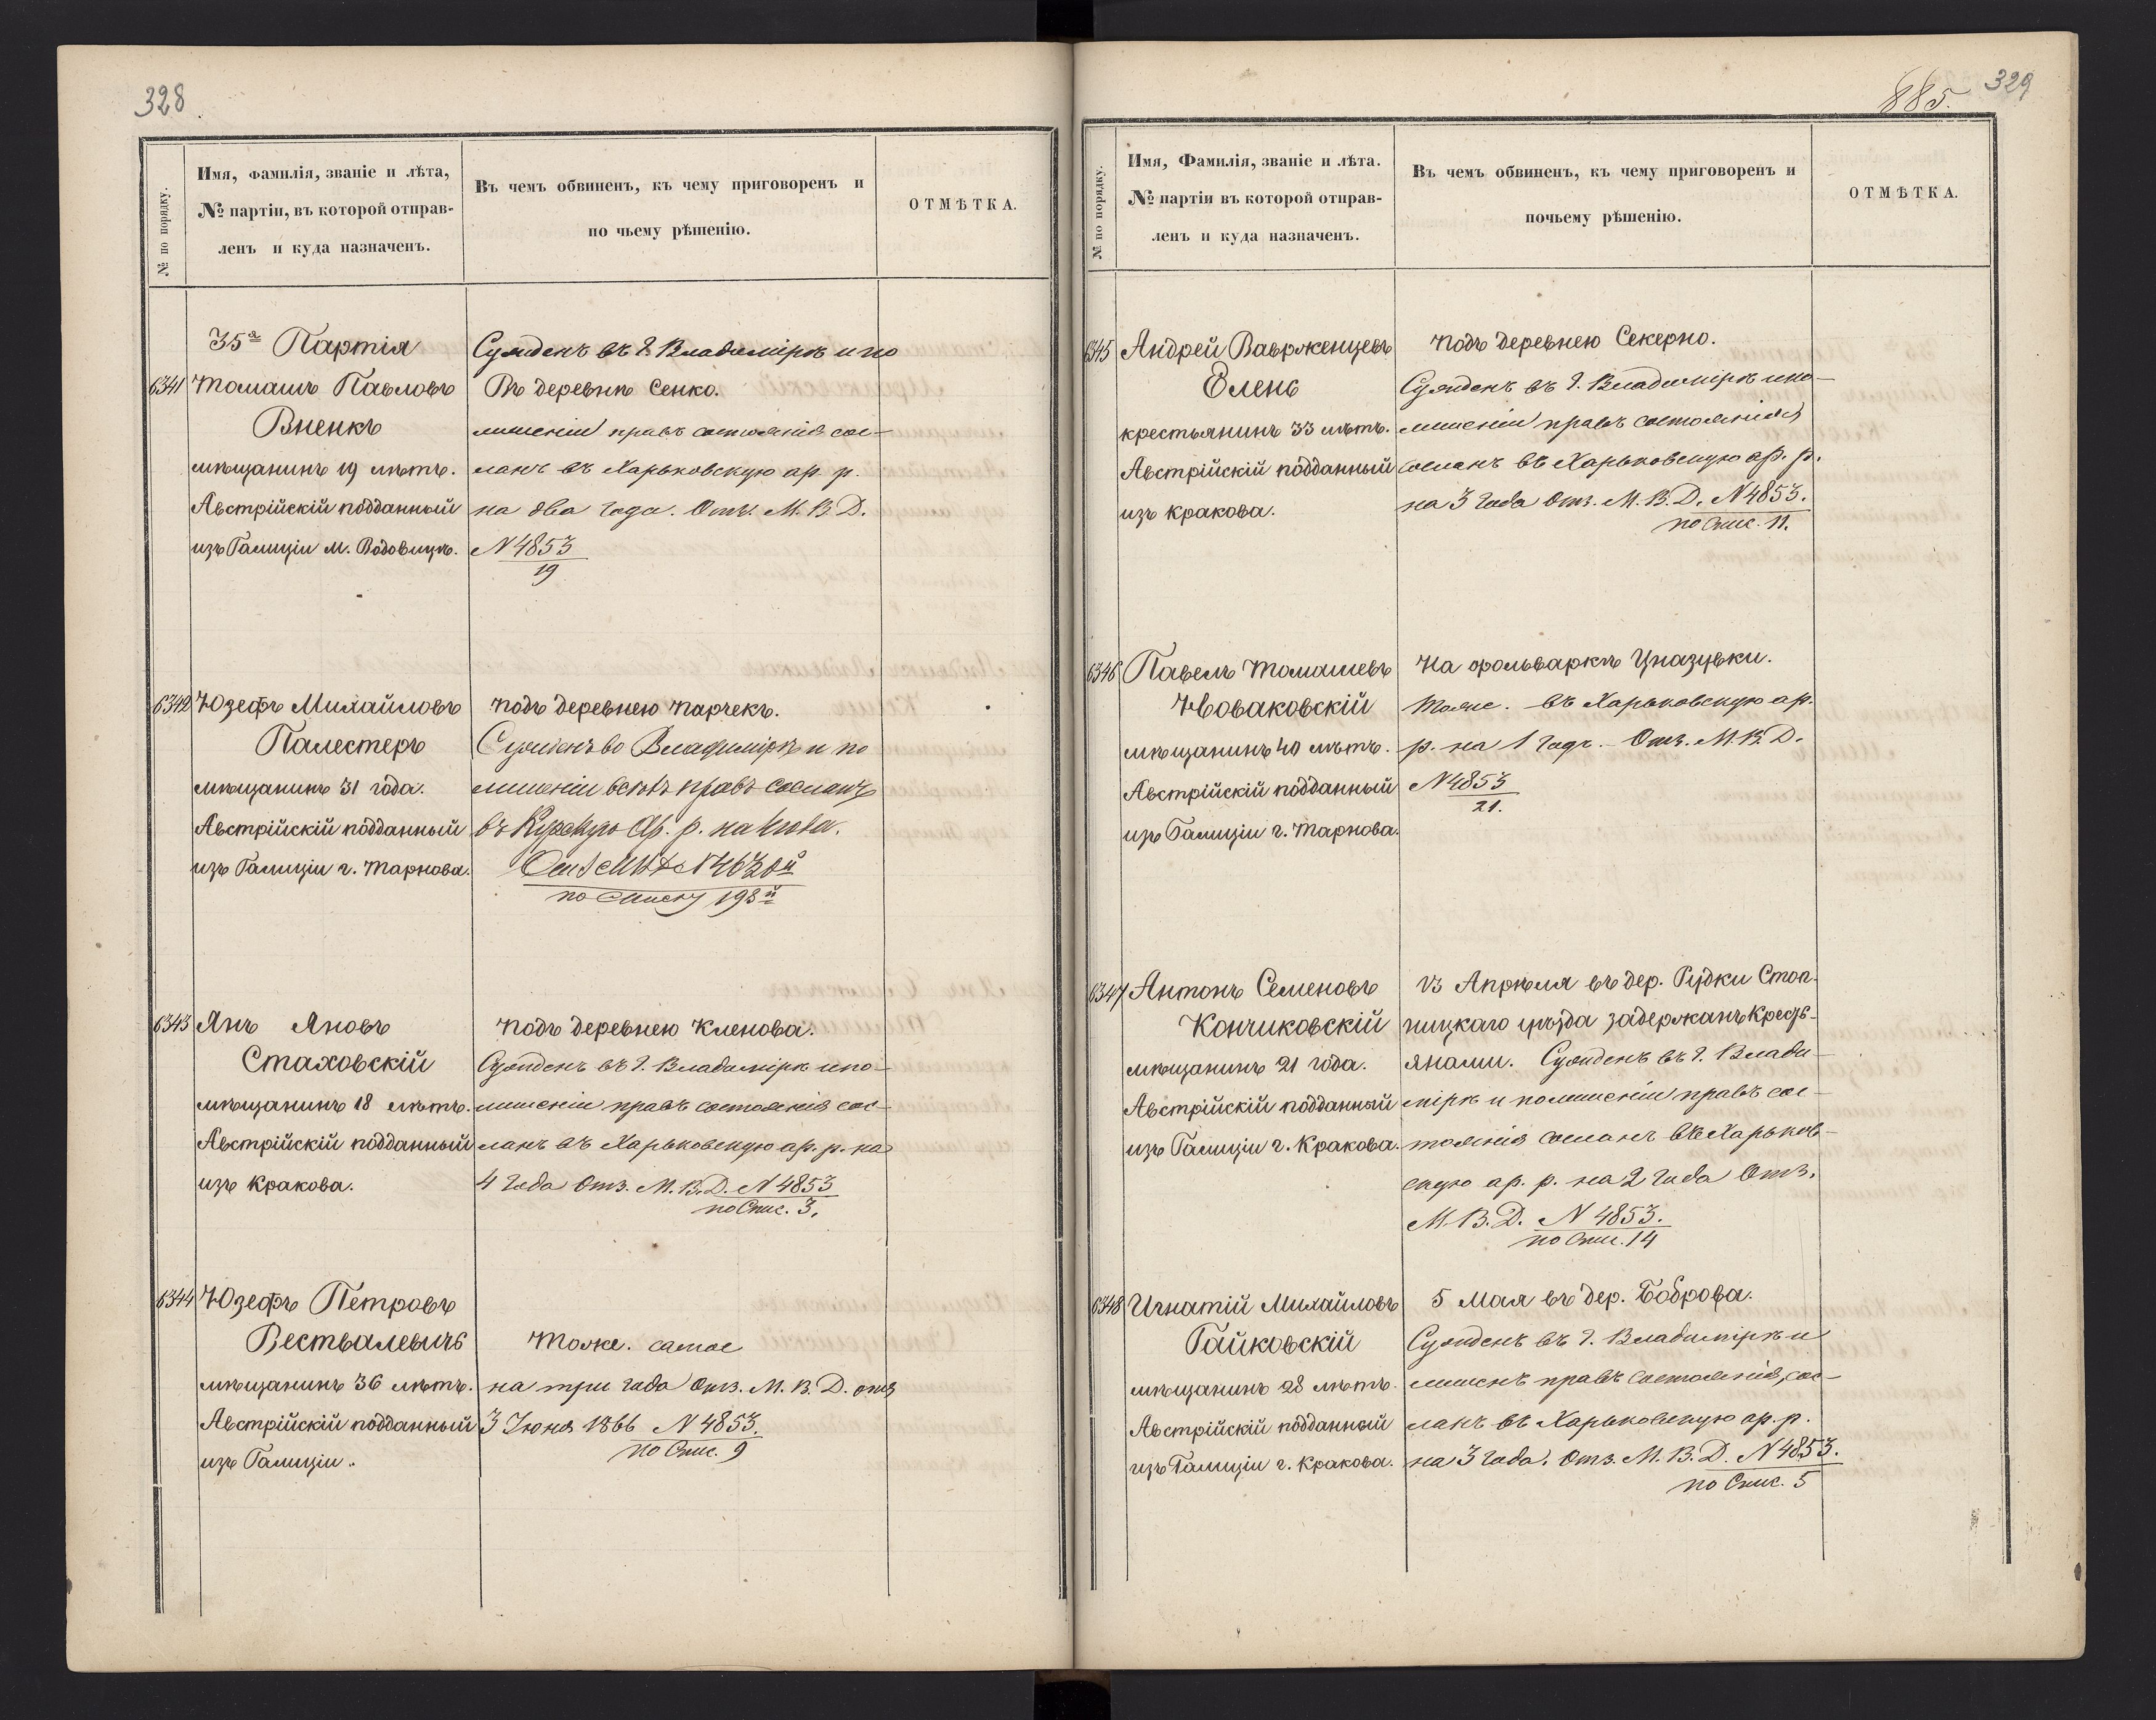 328
№ по порядку.
Имя, фамилія, званіе и лѣта,
№ партіи, въ которой отправ-
ленъ и куда назначенъ.
Въ чемъ обвиненъ, къ чему приговоренъ и
по чьему рѣшенію.
ОТМѢТКА.
35я Партія
6341 Томашъ Павловъ
Вненкъ
мѣщанинъ 19 лѣтъ.
Австрійскій подданный
изъ Галиціи м. Водовицъ.
Сужденъ въ г. Владимірѣ и по
Въ деревнѣ Сенко.
лишеніи правъ состоянія сос-
ланъ въ Харьковскую ар. р.
на два года. Отз. М. В. Д.
N 4853
19
6342 Юзефъ Михайловъ
Палестеръ
мѣщанинъ 31 года.
Австрійскій подданный
изъ Галиціи г. Тарнова.
подъ деревнею Парчекъ.
Сужденъ во Владимірѣ и по
лишеніи всѣхъ правъ сосланъ
въ Курскую Ар. р. на
N 4630й
по списку 193й
6343 Янъ Яновъ
Стаховскій
мѣщанинъ 18 лѣтъ.
Австрійскій подданный
изъ Кракова.
подъ деревнею Кленова.
Сужденъ въ г. Владимірѣ и по
лишеніи правъ состоянія сос-
ланъ въ Харьковскую ар. р. на
4 года Отз. М. В. Д. N 4853
по Спис. 3.
6344 Юзефъ Петровъ
Вествалевичъ
мѣщанинъ 36 лѣтъ.
Австрійскій подданный
изъ Галиціи.
Тоже. самое
на три года Отз. М. В. Д. отъ
3 Іюня 1866 N 4853.
по Спис. 9
329
885.
№ по порядку.
Имя, Фамилія, званіе и лѣта.
№ партіи въ которой отправ-
ленъ и куда назначенъ.
Въ чемъ обвиненъ, къ чему приговоренъ и
почьему рѣшенію.
ОТМѢТКА.
6345 Андрей Ваврженцевъ
Елень
крестьянинъ 33 лѣтъ.
Австрійскій подданный
изъ Кракова.
подъ деревнею Секерно.
Сужденъ въ г. Владимірѣ и по-
лишеніи правъ состоянія
сосланъ въ Харьковскую ар. р.
на 3 года Отз. М. В. Д. N 4853.
по Спис. 11.
6346 Павелъ Томашевъ
Новаковскій
мѣщанинъ 40 лѣтъ.
Австрійскій подданный
изъ Галиціи г. Тарнова.
На фольваркѣ
Тоже. въ Харьковскую ар.
р. на 1 годъ. Отз. М. В. Д.
N 4853
21.
6347 Антонъ Семеновъ
Кончиковскій
мѣщанинъ 21 года.
Австрійскій подданный
изъ Галиціи г. Кракова.
Апрѣля въ дер. Рудки Стоп-
ницкаго уѣзда задержанъ кресть-
янами. Сужденъ въ г. Влади-
мірѣ и по лишеніи правъ сос-
тоянія сосланъ въ Харьков-
скую ар. р. на 2 года Отз.
М. В. Д. N 4853.
по Спис. 14
6348 Игнатій Михайловъ
Гайковскій
мѣщанинъ 28 лѣтъ.
Австрійскій подданный
изъ Галиціи г. Кракова.
5 Мая въ дер. Боброва.
Сужденъ въ г. Владимірѣ и
лишенъ правъ состоянія, сос-
ланъ въ Харьковскую ар. р.
на 3 года. Отз. М. В. Д. N 4853.
по Спис. 5